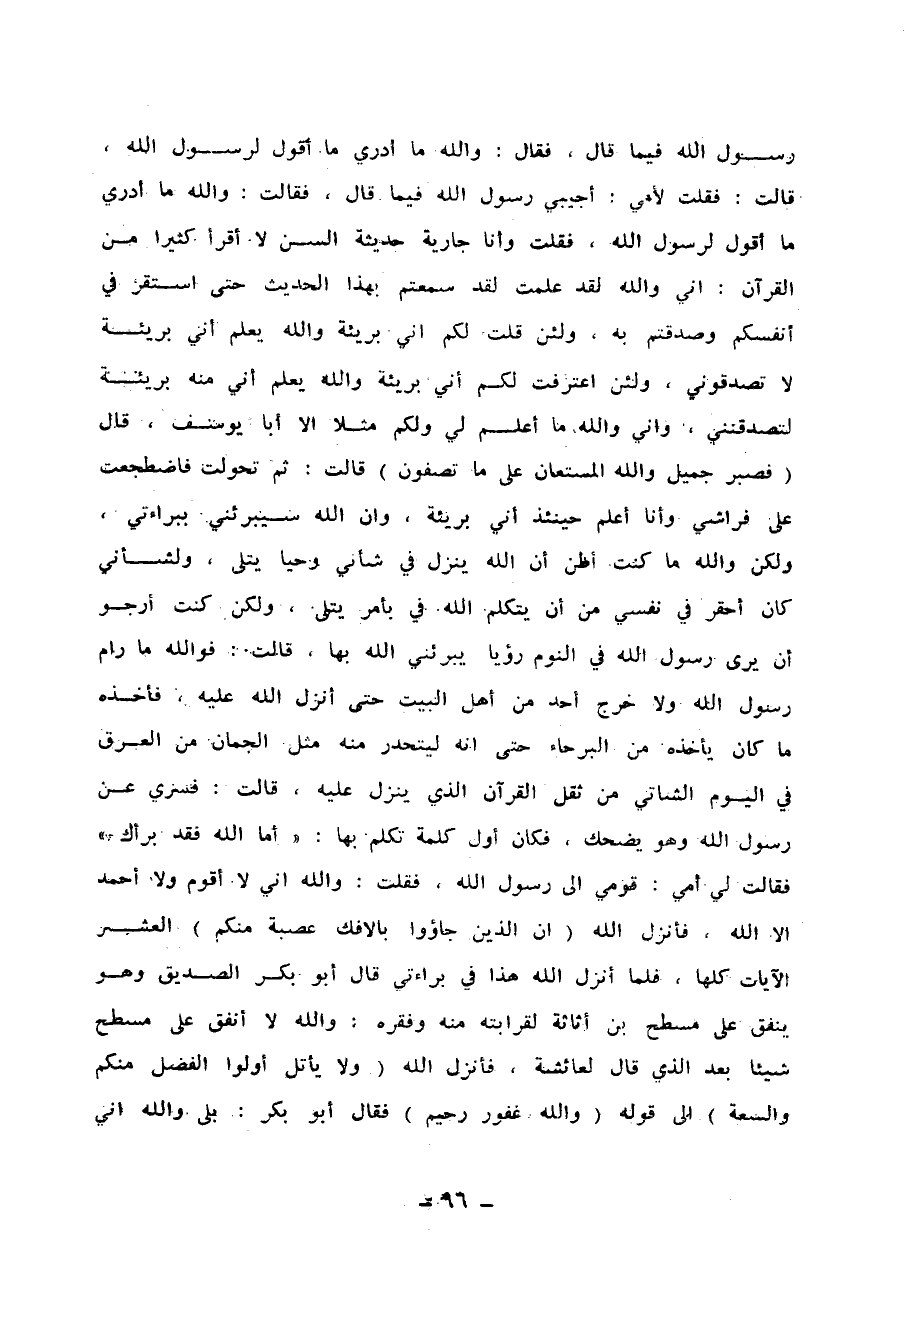 رسول الله فيما قال ، فقال : والله ما أدري ما أقول لرسول الله ،
قالت : فقلت لأمي : أجيبي رسول الله فيما قال ، فقالت : والله ما أدري
ما أقول لرسول الله ، فقلت وأنا جارية حديثة السن لا أقرأ كثيرا من
القرآن : اني والله لقد علمت لقد سمعتم بهذا الحديث حتى استقر في
أنفسكم وصدقتم به ، ولئن قلت لكم اني بريئة والله يعلم أني بريئة
لا تصدقوني ، ولئن اعترفت لكم أني بريئة والله يعلم أني منه بريئة
لتصدقنني ، واني والله ما أعلم لي ولكم مثلا الا أبا يوسف ، قال
( فصبر جميل والله المستعان على ما تصفون ) قالت : ثم تحولت فاضطجعت
على فراشي وأنا أعلم حينئذ أني بريئة ، وان الله سيبرئني ببراءتي ،
ولكن والله ما كنت أظن أن الله ينزل في شأني وحيا يتلى ، ولشأني
كان أحقر في نفسي من أن يتكلم الله في بأمر يتلى ، ولكن كنت أرجو
أن يرى رسول الله في النوم رؤيا يبرئني الله بها ، قالت : فوالله ما رام
رسول الله ولا خرج أحد من أهل البيت حتى أنزل الله عليه ، فأخذه
ما كان يأخذه من البرحاء حتى انه ليتحدر منه مثل الجمان من العرق
في اليوم الشاتي من ثقل القرآن الذي ينزل عليه ، قالت : فسري عن
رسول الله وهو يضحك ، فكان أول كلمة تكلم بها : « أما الله فقد برأك »
فقالت لي أمي : قومي الى رسول الله ، فقلت : والله اني لا أقوم ولا أحمد
الا الله ، فأنزل الله ( ان الذين جاؤوا بالافك عصبة منكم ) العشر
الآيات كلها ، فلما أنزل الله هذا في براءتي قال أبو بكر الصديق وهو
ينفق على مسطح بن أثاثة لقرابته منه وفقره : والله لا أنفق على مسطح
شيئا بعد الذي قال لعائشة ، فأنزل الله ( ولا يأتل أولوا الفضل منكم
والسعة ) الى قوله ( والله غفور رحيم ) فقال أبو بكر : بلى والله اني
– ٩٦ –